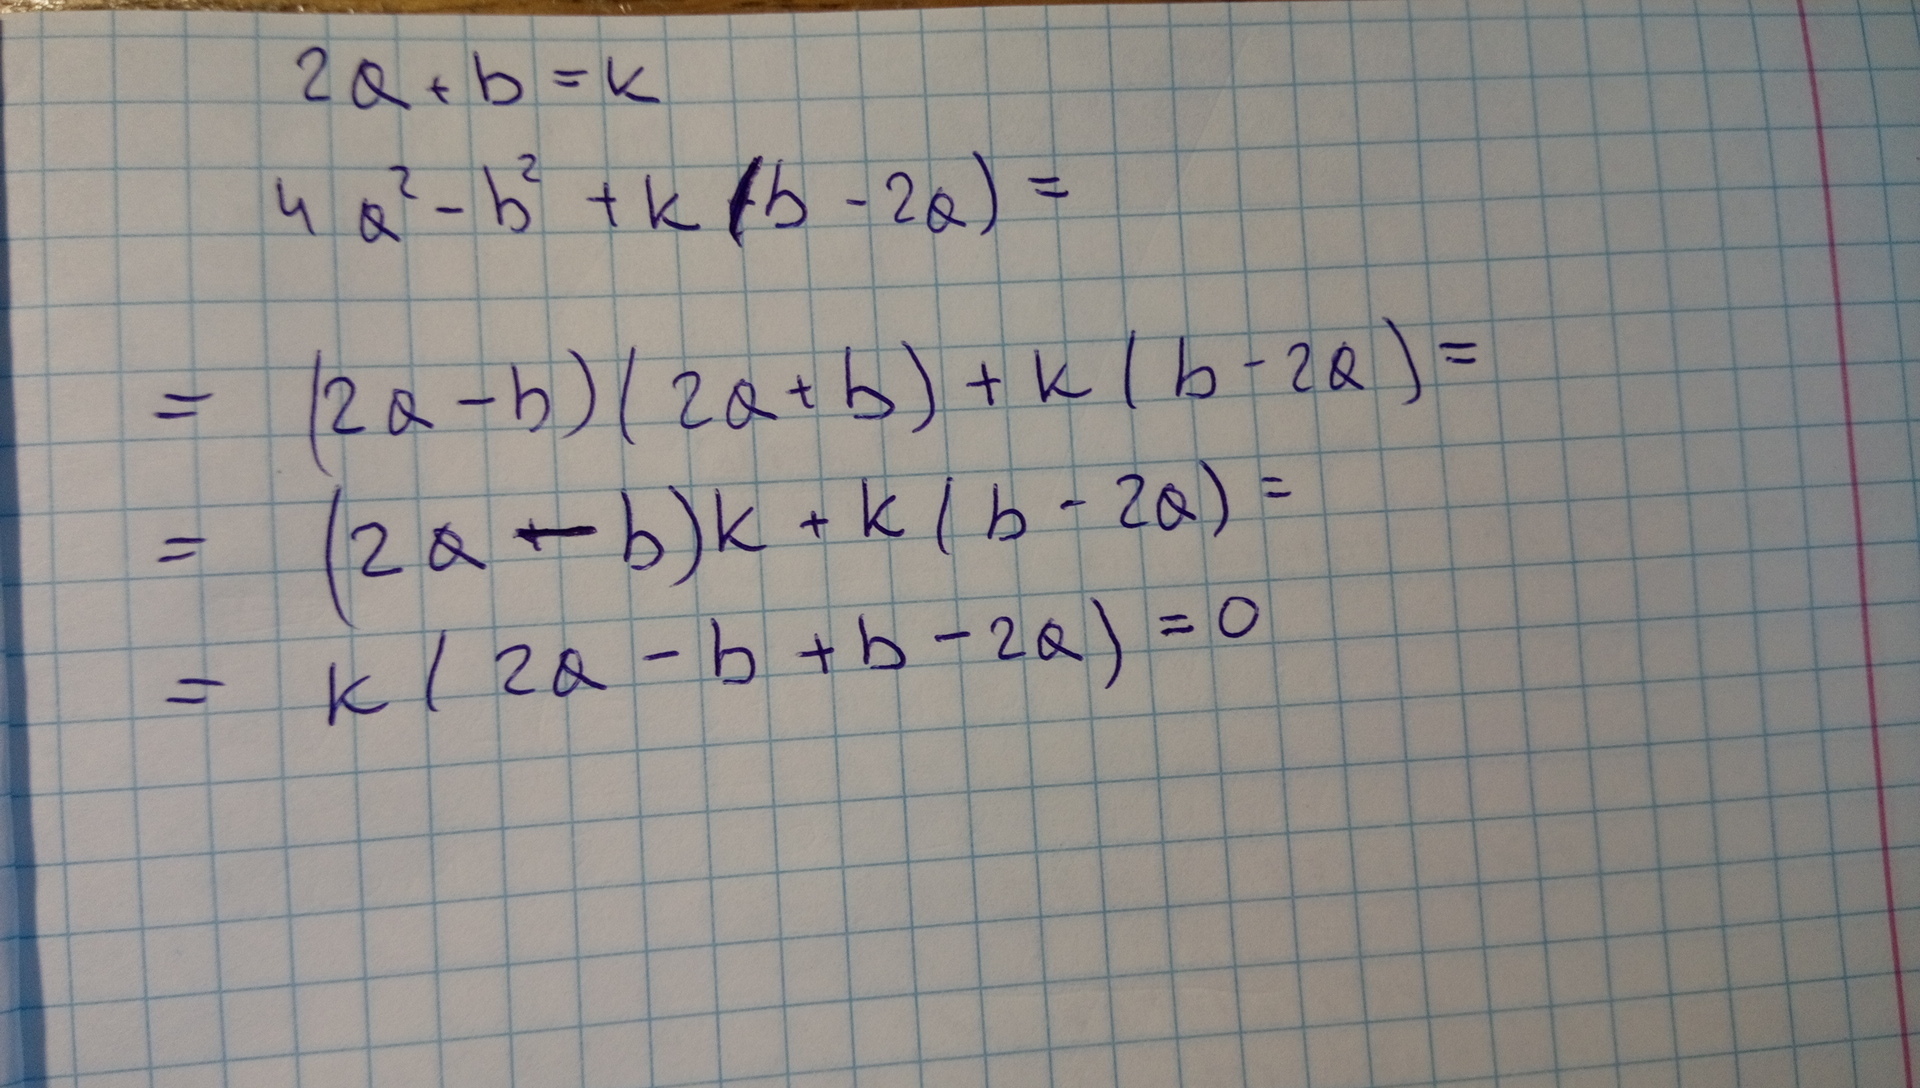 2a + b = k
4a² - b² + k(b - 2a) =
= (2a - b)(2a + b) + k(b - 2a) =
= (2a - b)k + k(b - 2a) =
= k(2a - b + b - 2a) = 0